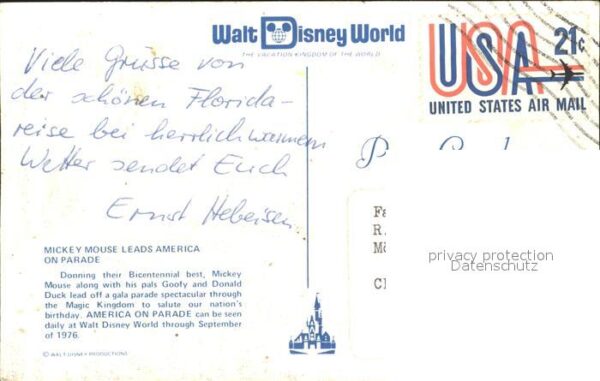 Walt Disney World
THE VACATION KINGDOM OF THE WORLD
USA 21c
UNITED STATES AIR MAIL
Viele Grüsse von
der schönen Florida-
reise bei herrlich warmem
Wetter sendet Euch
Ernst Hebeisen
MICKEY MOUSE LEADS AMERICA
ON PARADE
Donning their Bicentennial best, Mickey
Mouse along with his pals Goofy and Donald
Duck lead off a gala parade spectacular through
the Magic Kingdom to salute our nation's
birthday. AMERICA ON PARADE can be seen
daily at Walt Disney World through September
of 1976.
© WALT DISNEY PRODUCTIONS
Fa
R.
privacy protection
Datenschutz